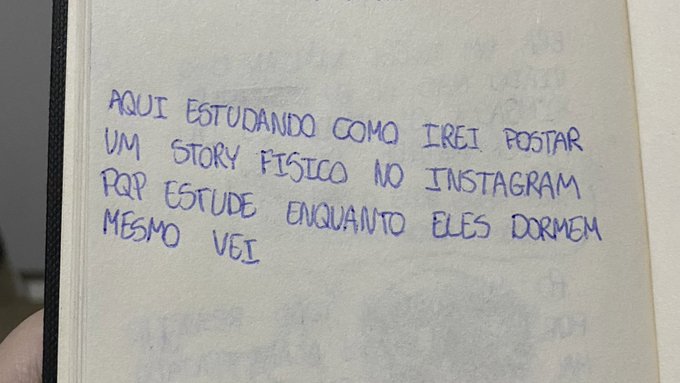 AQUI ESTUDANDO COMO IREI POSTAR
UM STORY FISICO NO INSTAGRAM
PQP ESTUDE ENQUANTO ELES DORMEM
MESMO VEI